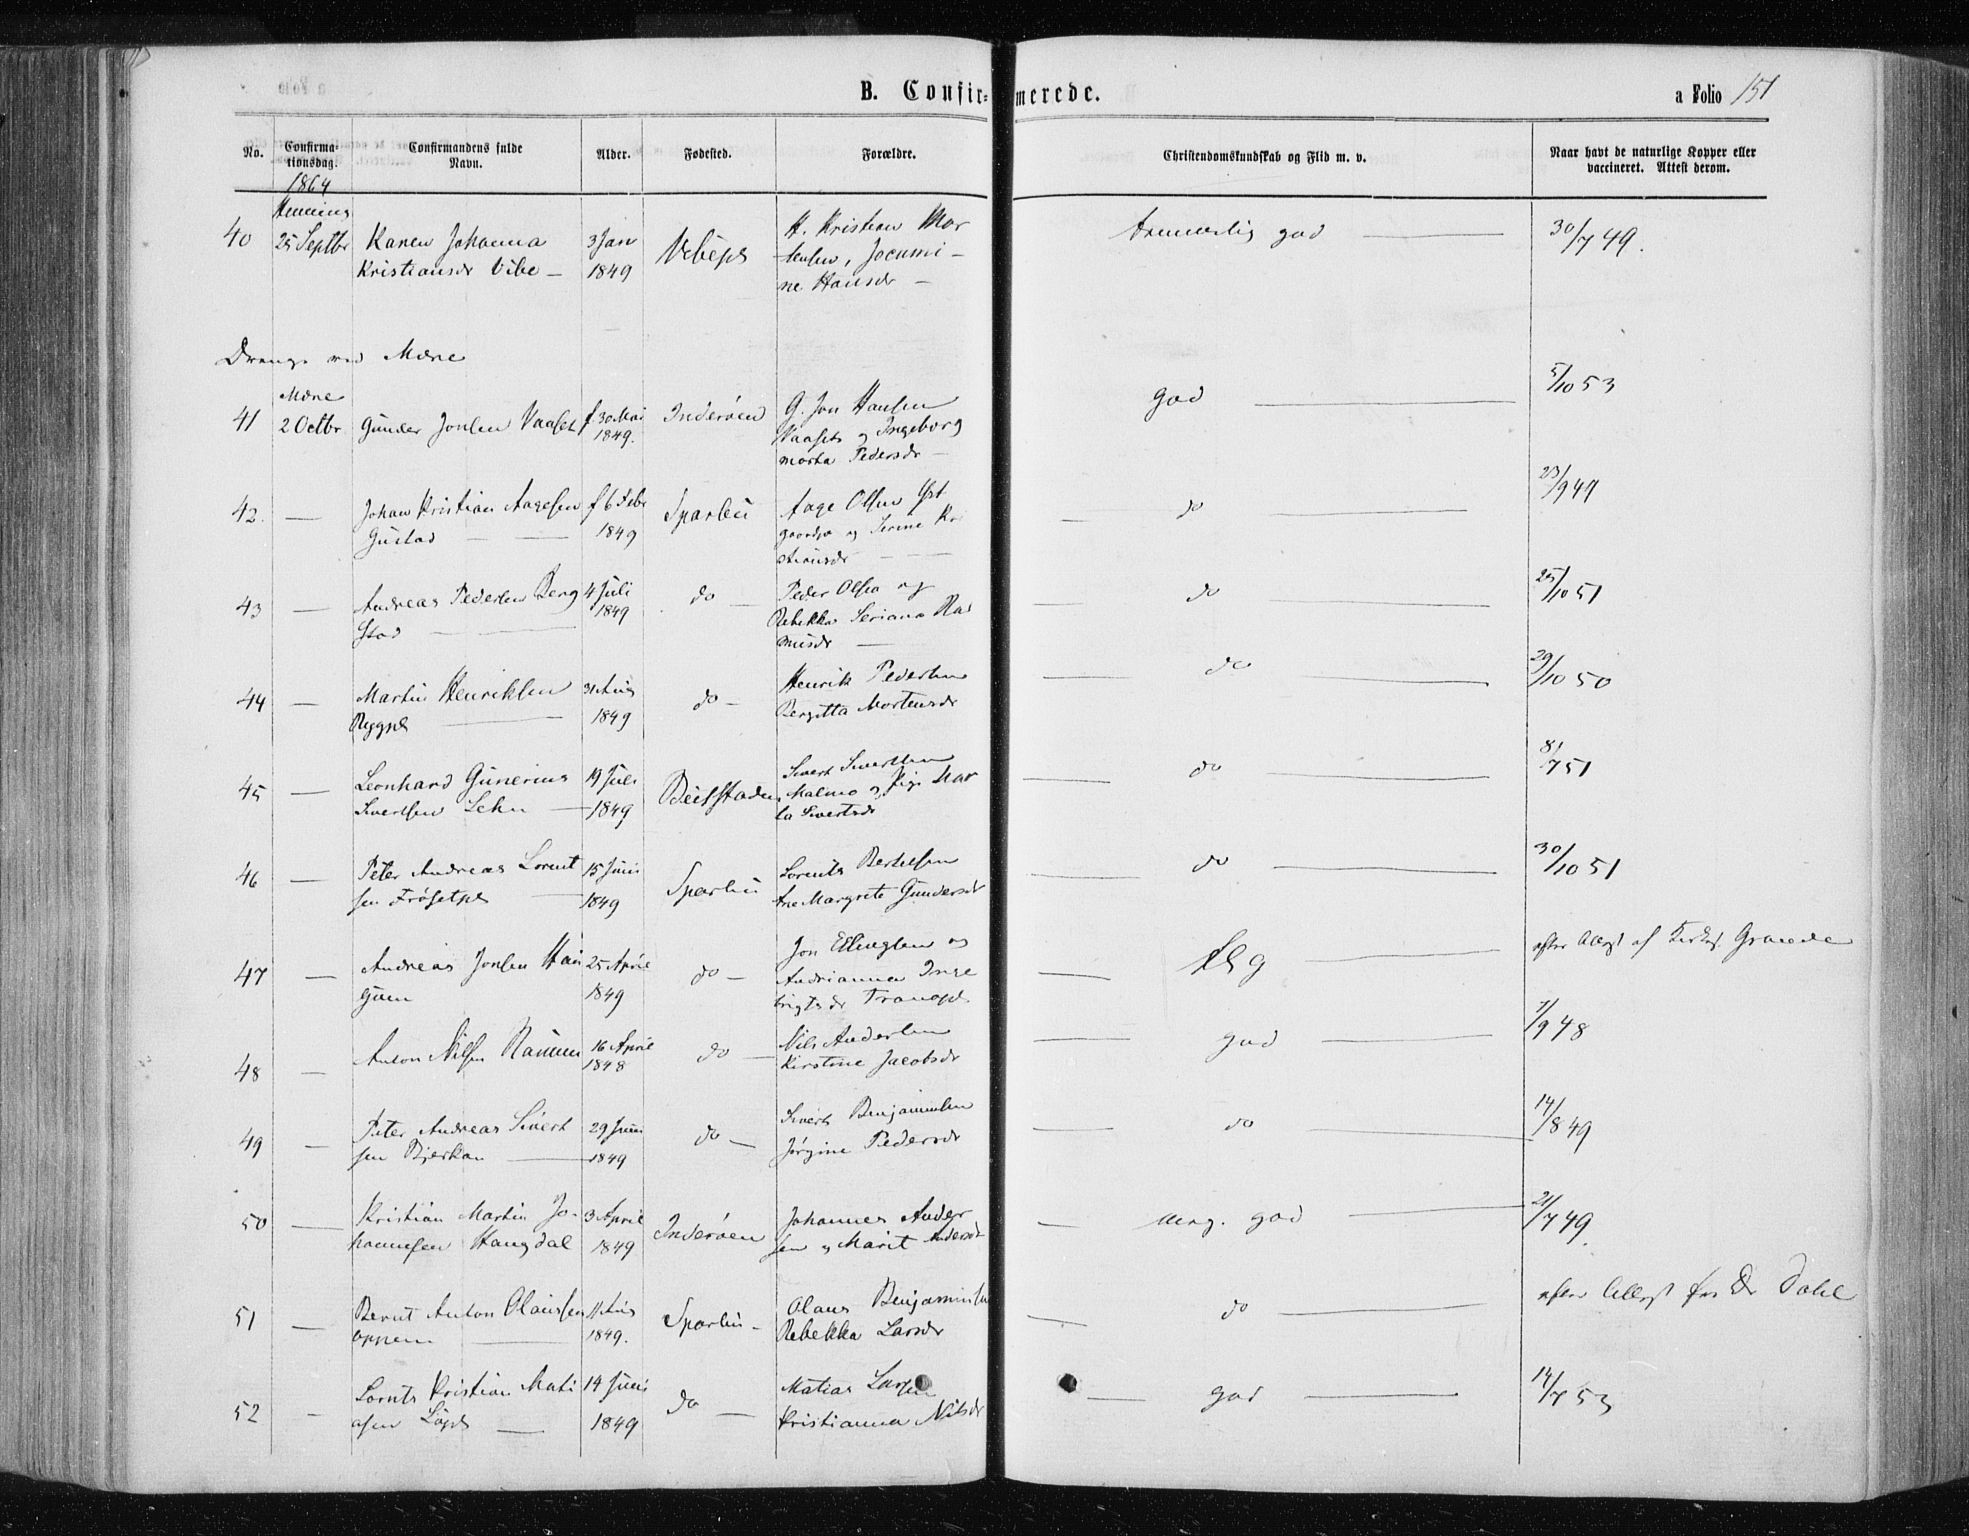 B. Confirmerede.
a Folio 151
No.
Confirmationsdag.
Confirmandens fulde Navn.
Alder.
Fødested.
Forældre.
Christendomskundskab og Flid m. v.
Naar havt de naturlige Kopper eller vaccineret. Attest derom.
1864
Henning
40 25 Septbr Karen Johanna 3 Jan H. Kristian Mor temmelig god 30/7 49.
Kristiansdr Vibe — 1849 tensen, Jocumi-
ne Hansdr —
Drenge ved Mære
Mære
41 2 Octbr Gunder Jonsen Vaaset f. 30 Mai Inderøen G. Jon Hansen god 5/10 53
1849. Vaaset og Ingeborg
marta Pedersdr —
42. — Johan Kristian Aagesen f 6 Febr Sparbu Aage Olsen Øst — do 23/9 49
Gustad — 1849 og Serine Kri
stiansdr —
43 — Andreas Pedersen Berg 4 Juli do — Peder Olsen og — do 25/10 51
Stad — 1849 Rebekka Seriana Ras
musdr —
44 — Martin Henriksen 31 Aug do — Henrik Pedersen — do 29/10 50
1849 Bergitta Mortensdr
45 — Leonhard Gunerius 19 Juli Beitstaden Sivert Sivertsen — do 8/7 51
Sivertsen Lehn — 1849 Malmo og Mar
ta Sivertsdr
46 — Peter Andreas Lornt 15 Juni Sparbu Lornts Bertelsen — do 30/10 51
sen Frøset — 1849 Ane Margrete Gundersdr
47 — Andreas Jonsen Hau 25 April do — Jon Ellingsen og — efter Attest af Granede
gum 1849 Andrianna Inge
brigtsdr
48 — Anton Nilsen Ramm 16 April do — Nils Andersen — god 7/9 48
1848 Kirstine Jacobsdr
49 — Peter Andreas Sivert 29 Juni do — Sivert Benjaminsen — do 14/8 49
sen Bjerkan — 1849 Jørgine Pedersdr
50 — Kristian Martin Jo- 3 April Inderøen Johannes Ander — meg. god 21/7 49.
hannesen Hangdal 1849 sen og Marit Andersdr
51 — Bernt Anton Olaussen 11 Aug Sparbu — Olaus Benjaminsen — do efter Attest fra Dr Dahl
oppem — 1849. Rebekka Larsdr
52 — Lornts Kristian Mati 14 Juni do — Matias Larsen — god 14/7 53
asen — 1849 Kristianna Nilsdr